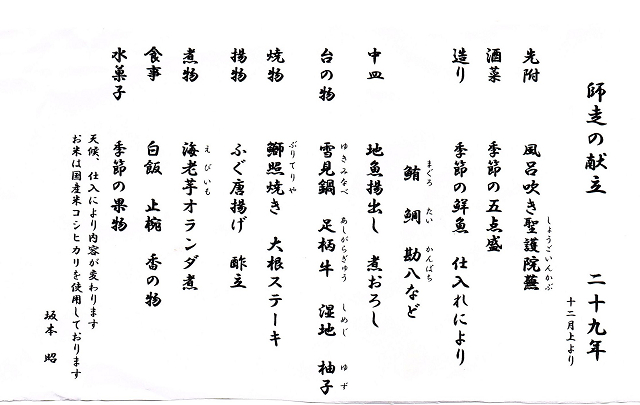 師走の献立 二十九年
十二月上より
先附 風呂吹き聖護院蕪
しょうごいんかぶ
酒菜 季節の五点盛
造り 季節の鮮魚 仕入れにより
まぐろ たい かんぱち
鮪 鯛 勘八など
中皿 地魚揚出し 煮おろし
ゆきみなべ あしがらぎゅう しめじ ゆず
台の物 雪見鍋 足柄牛 湿地 柚子
ぶりてりや
焼物 鰤照焼き 大根ステーキ
揚物 ふぐ唐揚げ 酢立
えびいも
煮物 海老芋オランダ煮
食事 白飯 止椀 香の物
水菓子 季節の果物
天候、仕入により内容が変わります
お米は国産米コシヒカリを使用しております
坂本 昭